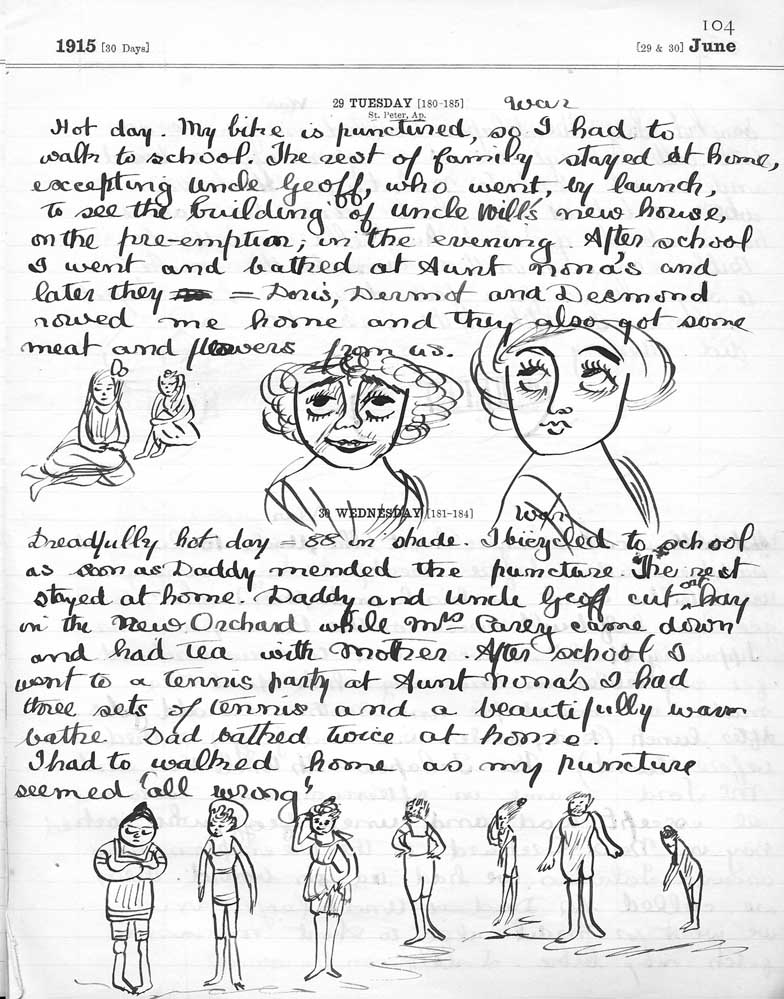 104
1915 [30 Days] [29 & 30] June
29 TUESDAY [180-185] war
St. Peter, Ap.
Hot day. My bike is punctured, so I had to
walk to school. The rest of family stayed at home,
excepting Uncle Geoff, who went, by launch,
to see the building of Uncle Will's new house,
on the pre-emption, in the evening. After school
I went and bathed at Aunt Nona's and
later they = Doris, Dermot and Desmond
rowed me home and they also got some
meat and flowers from us.
30 WEDNESDAY [181-184] war
Dreadfully hot day = 88 in shade. I bicycled to school
as soon as Daddy mended the puncture. The rest
stayed at home. Daddy and Uncle Geoff cut oat hay
in the New Orchard while Mrs Carey came down
and had tea with Mother. After school I
went to a tennis party at Aunt Nona's I had
three sets of tennis and a beautifully warm
bathe. Dad bathed twice at home.
I had to walked home as my puncture
seemed "all wrong"